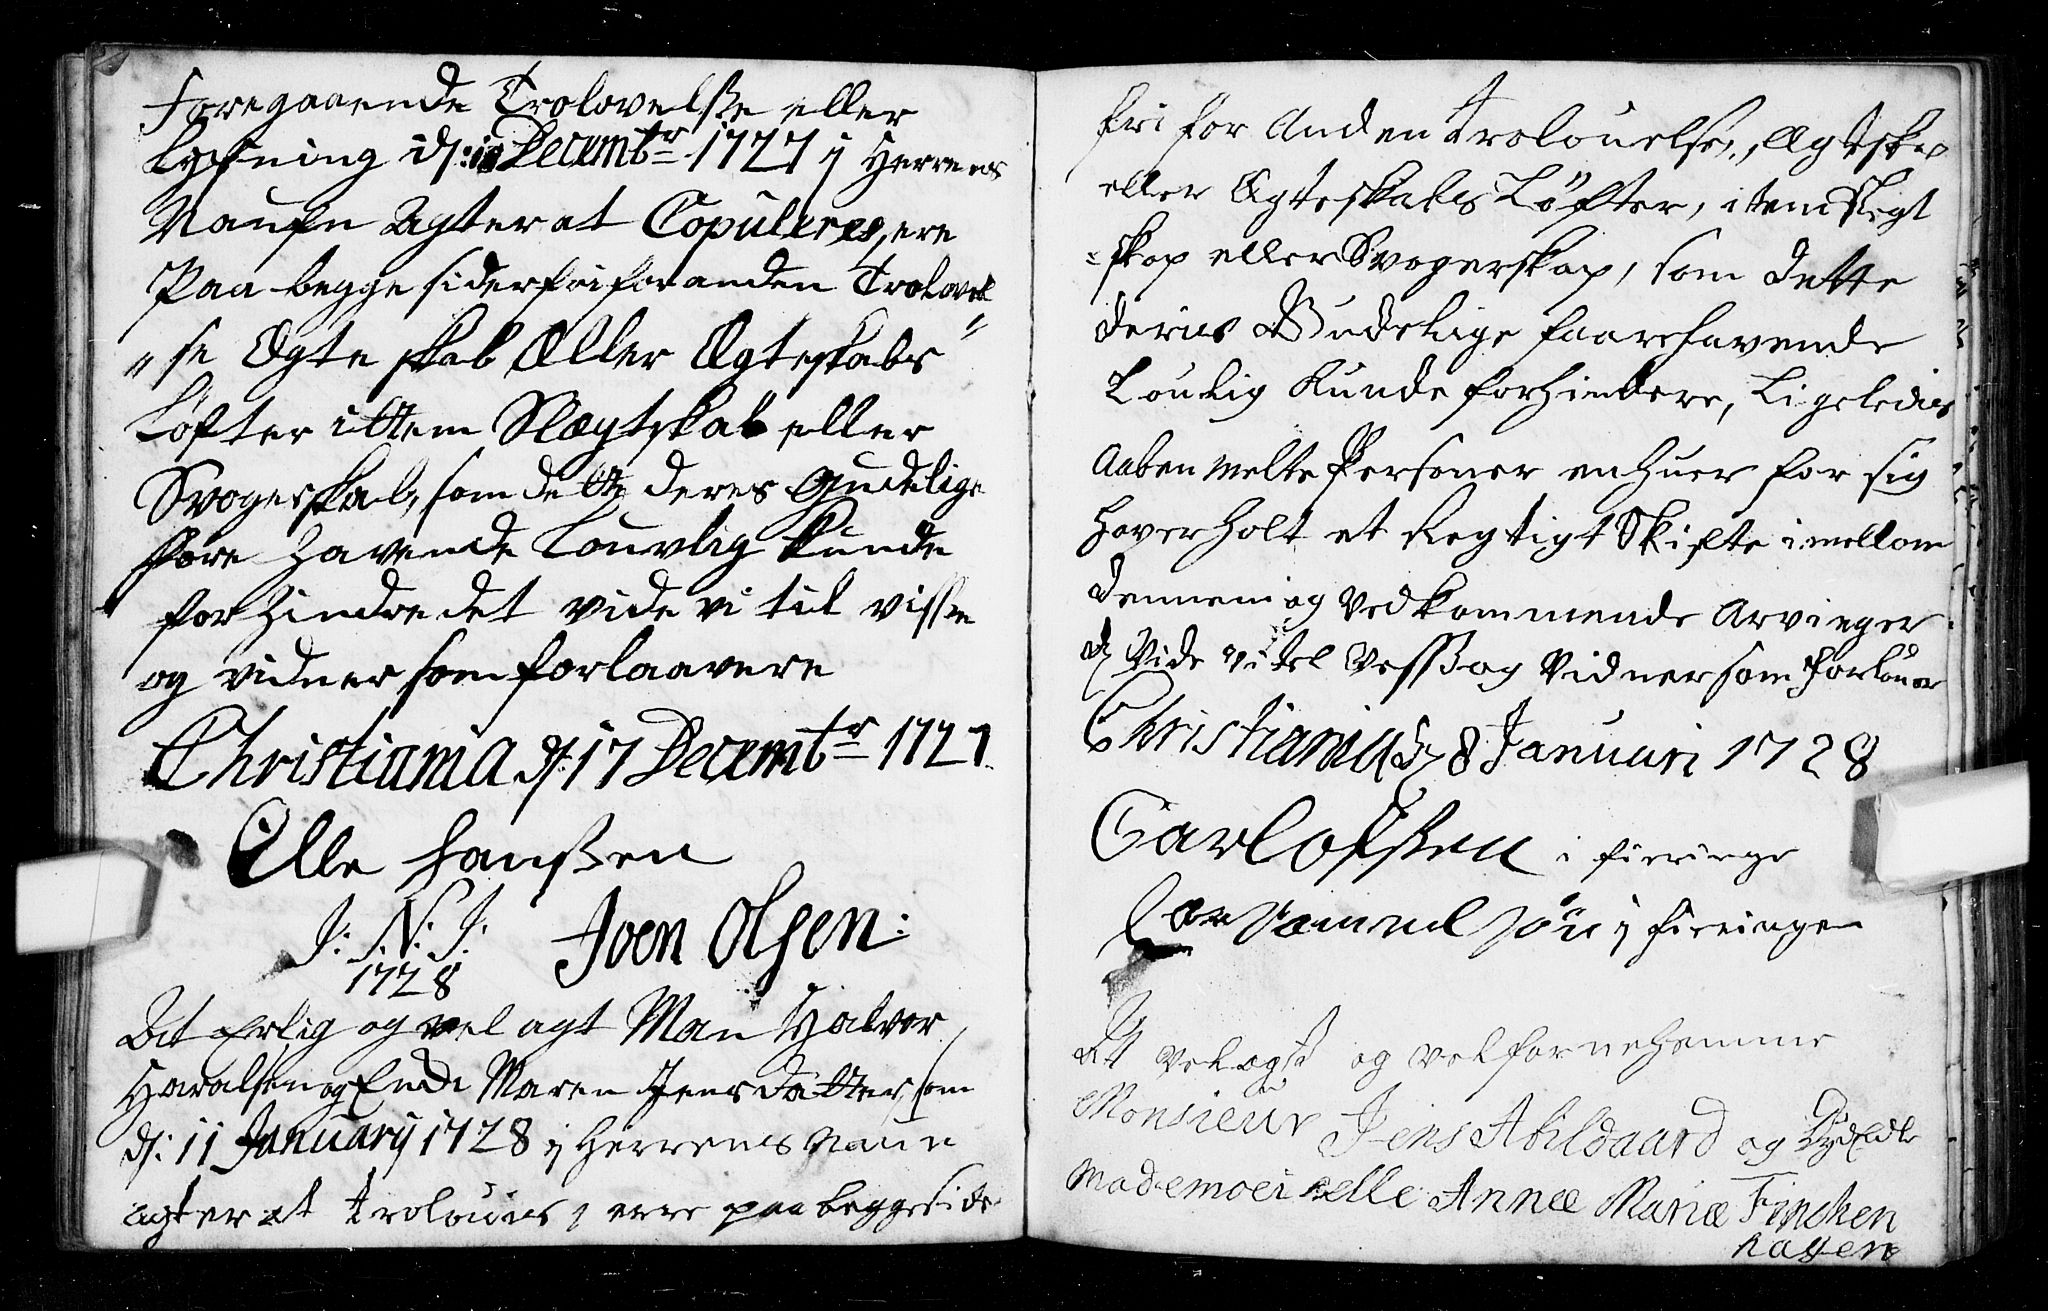 Foregaaende Trolovelsse eller
Lysning d: 18 Decembtr 1727 i Herrens
Naufn Agter at Copuleres, ere
Paa begge sider fri for anden Trolovel
"se Ægte skab Æller Ægteskabs"
Løfter ittem Slægtskab eller
Svogerskab, som dette deres Gudelige
fore havende Louvlig kunde
forhindre det vide vi til visse
og vidner som forlaavere
Christiania d: 17 Decembtr 1727
Olle Hanssen
J: N: J: Joen Olsen:
1728
Dat Erlig og vel agt Man Halvor
Haralsen og Ende Maren Jensdatter, som
d: 11 January 1728 i Herrens Naun
agter at trolouis, erre paa begge side
fri for Anden trolouelse, Ægtskap
eller Ægteskabs Løfter, item Slegt
=skap eller Svogerskap, som dette
deris Gudelige faarehavende
Loulig Kunde forhindere, Ligeledis
Aaben melte Personer en huer for sig
haver holt et Regtigt Skifte imellom
dennem og Vedkommende Arvinger
d Vide vi tel Vesse og Vidner som forlouer
Christiania d 8 Januari 1728
Carl Olssen i fieringe
Samuel i fieringen
At Vel agt og velfornehemme
Monsieur Jens Abildgaard og Dydædle
Mademoeiselle Annæ Mariæ Finchen
hagen